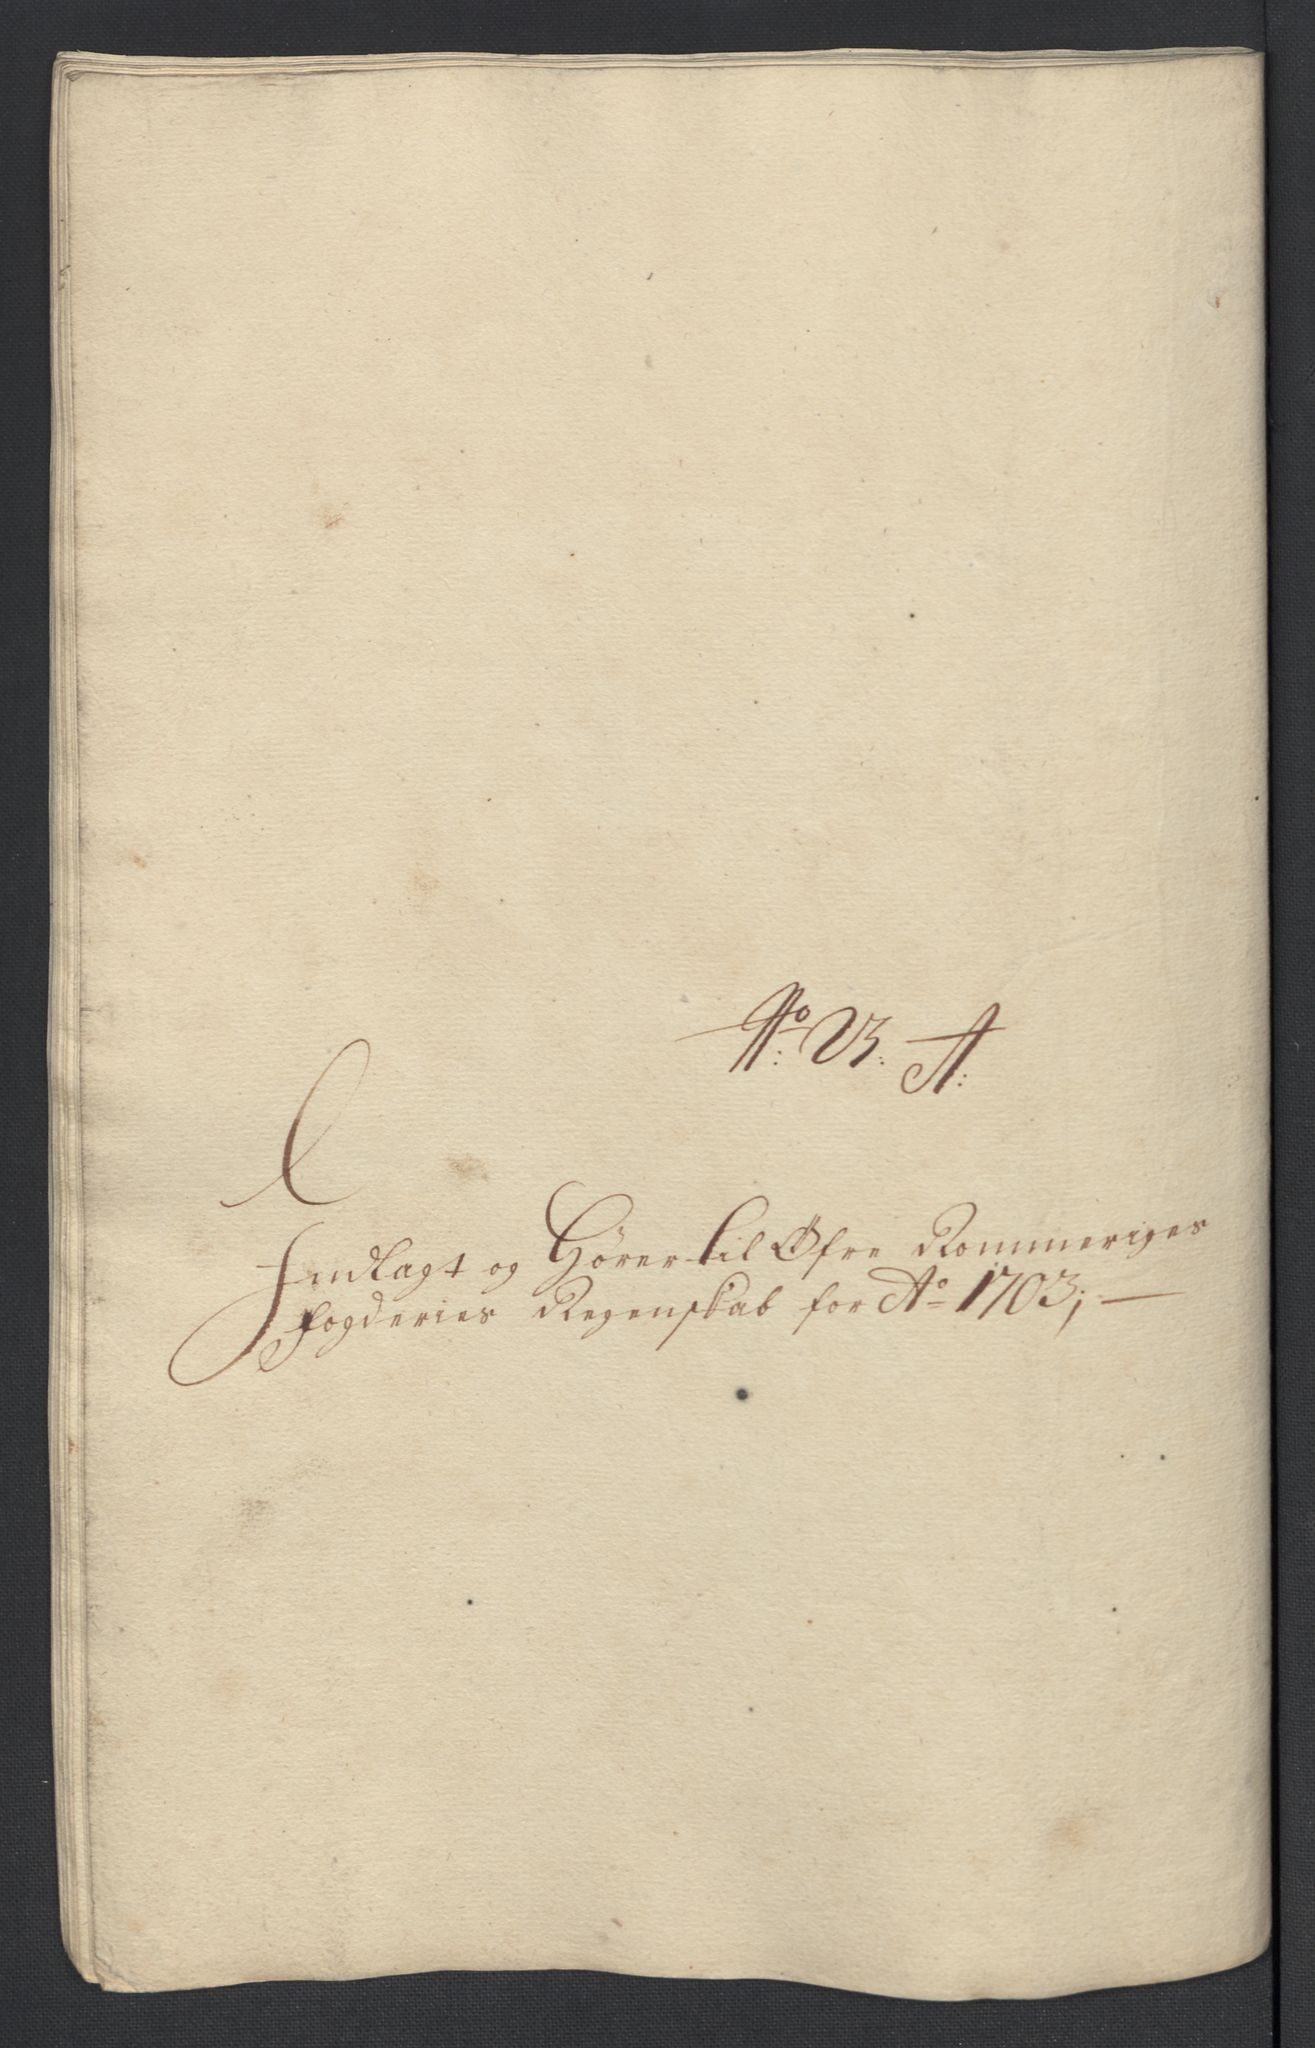 No: 23: A:
Indlagt og Hører til Øfre Rommeriges
fogderies Regenskab for Ao 1703;